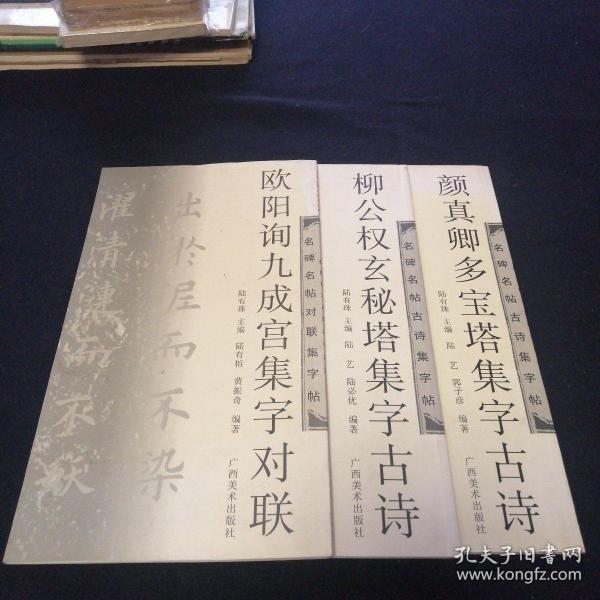 欧阳询九成宫集字对联
名碑名帖对联集字帖
陆有珠 主编 陆有榕 黄振奇 编著
广西美术出版社
出於淤而不染
濯清涟而不妖
柳公权玄秘塔集字古诗
名碑名帖古诗集字帖
陆有珠 主编 陆艺 陆必优 编著
广西美术出版社
颜真卿多宝塔集字古诗
名碑名帖古诗集字帖
陆有珠 主编 陆艺 郭子彦 编著
广西美术出版社
孔夫子旧书网
www.kongfz.com